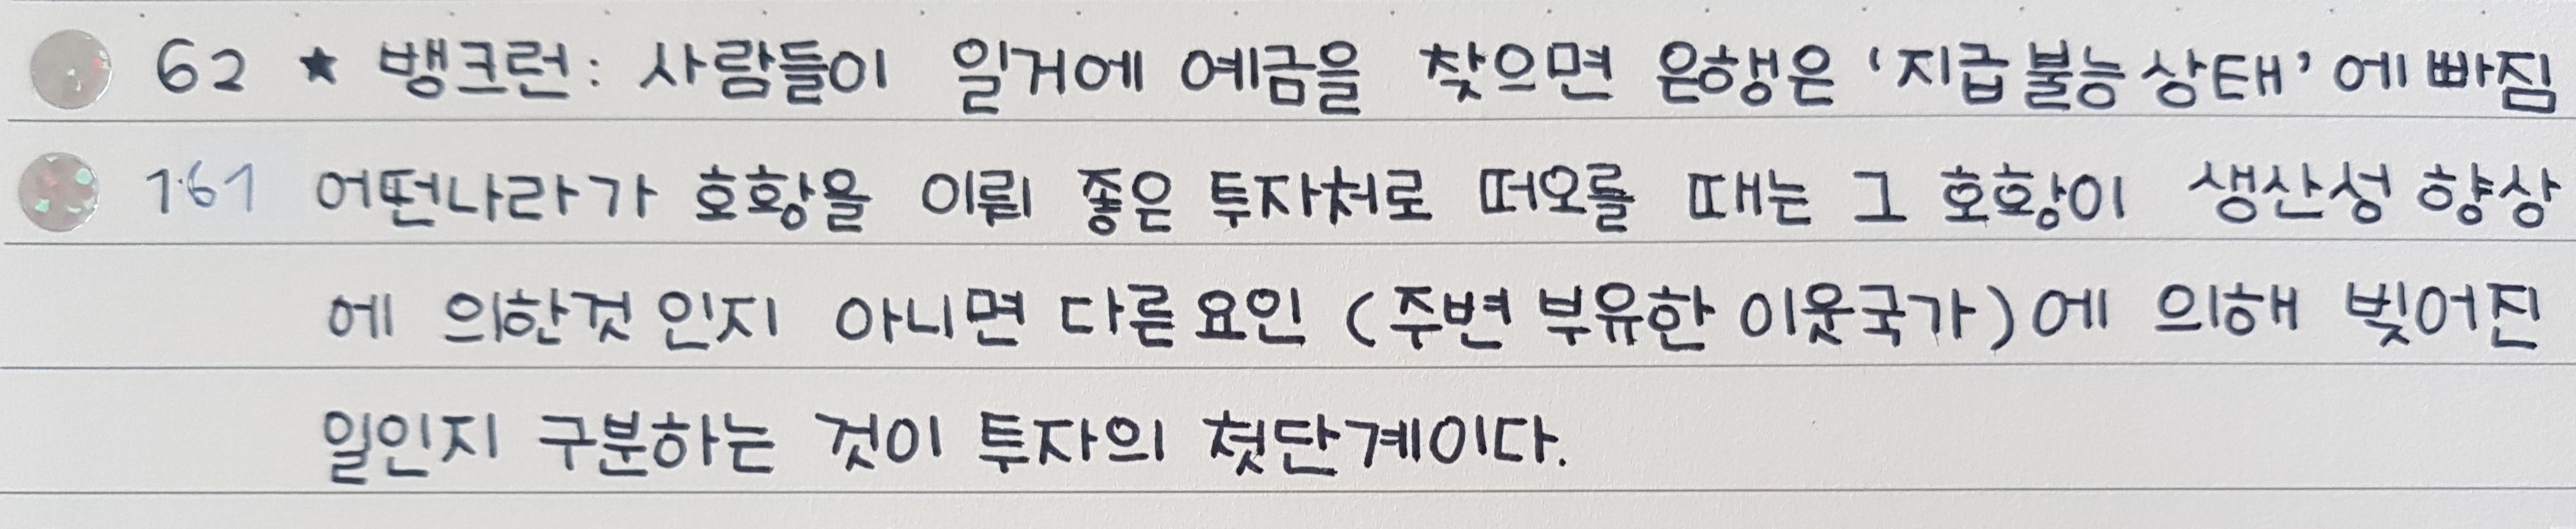 62 ★ 뱅크런: 사람들이 일거에 예금을 찾으면 은행은 '지급불능상태'에 빠짐
161 어떤나라가 호황을 이뤄 좋은 투자처로 떠오를 때는 그 호황이 생산성 향상
에 의한것 인지 아니면 다른요인 (주변 부유한 이웃국가)에 의해 빚어진
일인지 구분하는 것이 투자의 첫단계이다.